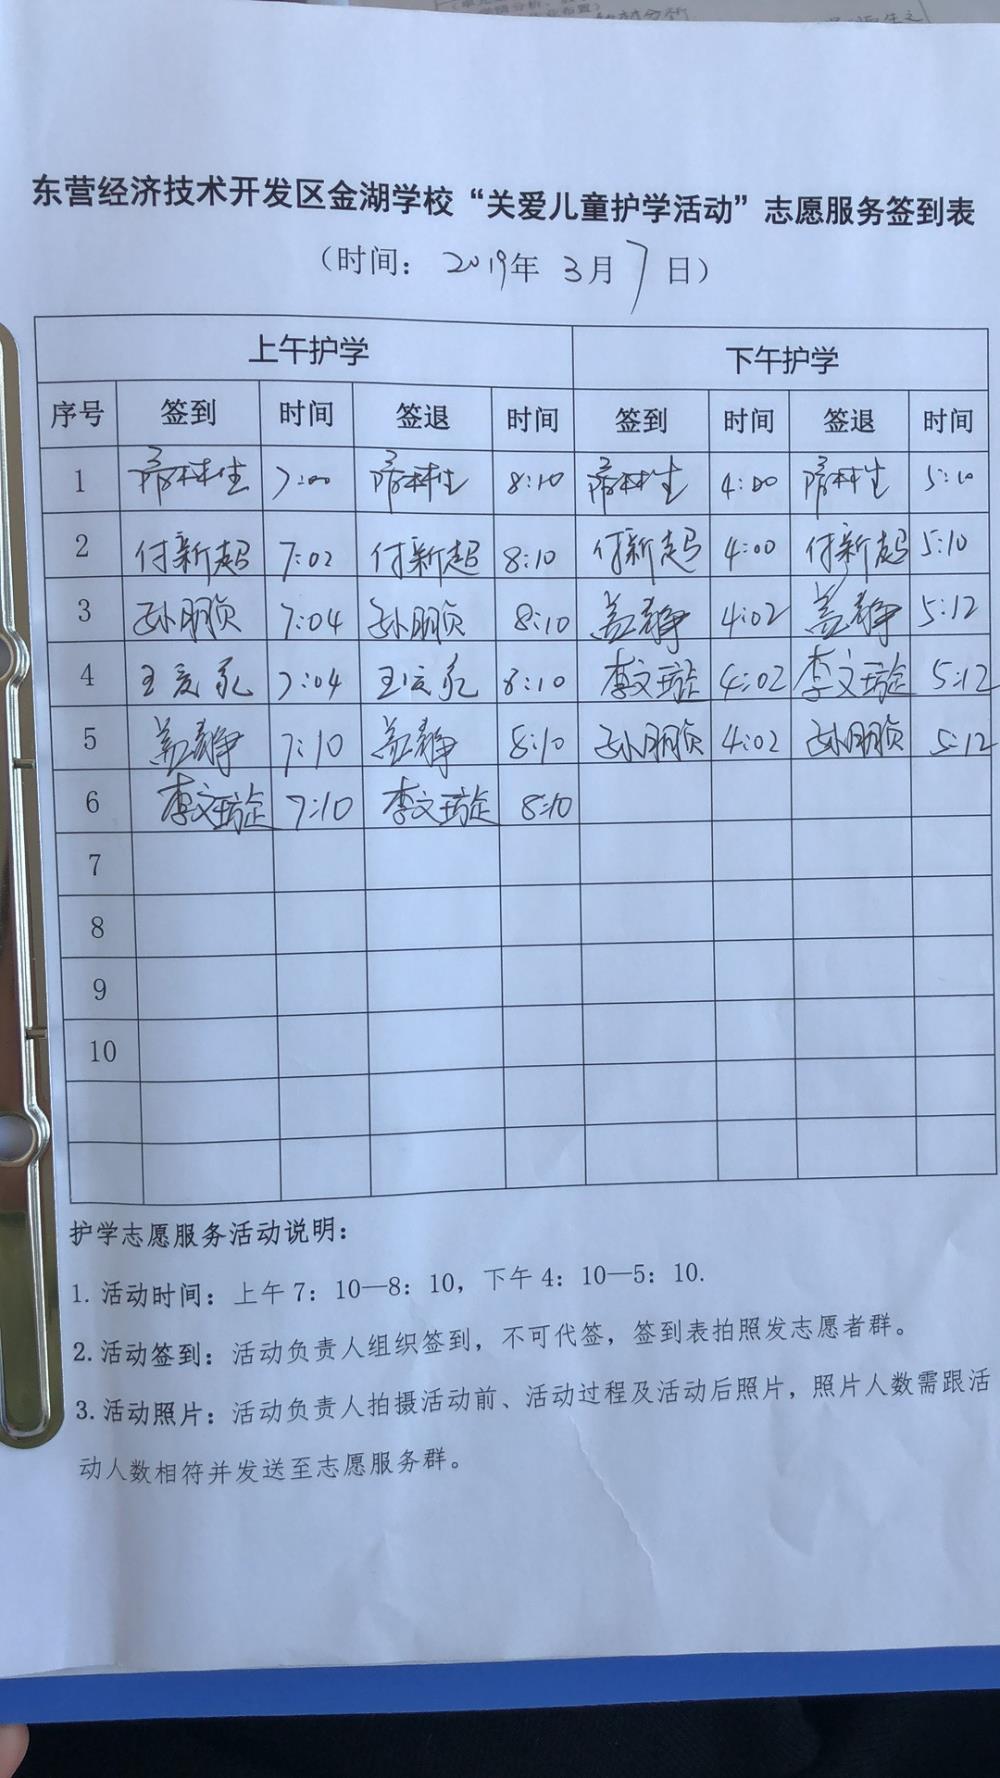 东营经济技术开发区金湖学校“关爱儿童护学活动”志愿服务签到表
（时间：2019年 3月7日）
上午护学 下午护学
序号 签到 时间 签退 时间 签到 时间 签退 时间
1 7:00 8:10 4:00 5:10
2 付新起 7:02 付新起 8:10 付新起 4:00 付新起 5:10
3 孙朋贞 7:04 孙朋贞 8:10 盖静 4:02 盖静 5:12
4 7:04 8:10 李文璇 4:02 李文璇 5:12
5 盖静 7:10 盖静 8:10 孙朋贞 4:02 孙朋贞 5:12
6 李文璇 7:10 李文璇 8:10
7
8
9
10
护学志愿服务活动说明：
1.活动时间：上午7：10—8：10，下午4：10—5：10.
2.活动签到：活动负责人组织签到，不可代签，签到表拍照发志愿者群。
3.活动照片：活动负责人拍摄活动前、活动过程及活动后照片，照片人数需跟活
动人数相符并发送至志愿服务群。